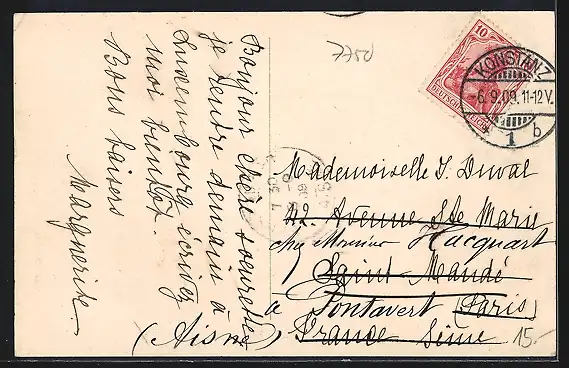 Bonjour chère soeurette
je rentre demain à
Luxembourg écrivez
moi bientôt.
Bons baisers
Marguerite
7750
10
DEUTSCHES REICH
KONSTANZ
-6.9.09.11-12V.
* 1 b
Mademoiselle J. Duval
42 Avenue Ste Marie
chez Monsieur Hacquart
Saint-Mandé
à Pontavert (Paris)
(Aisne) France Seine
15.-